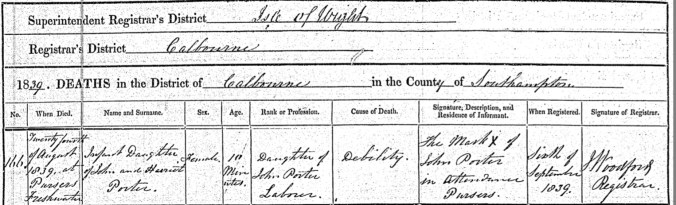 Superintendent Registrar's District Isle of Wight
Registrar's District Calbourne
1839. DEATHS in the District of Calbourne in the County of Southampton
No. When Died. Name and Surname. Sex. Age. Rank or Profession. Cause of Death. Signature, Description, and Residence of Informant. When Registered. Signature of Registrar.
166
Twenty fourth
of August
1839. at
Pursers
Freshwater
Infant Daughter
of John and Harriet
Porter.
Female
10
Min
utes.
Daughter of
John Porter
Labourer.
Debility.
The Mark X of
John Porter
in Attendance
Pursers.
Sixth of
September
1839.
J Woodford
Registrar.